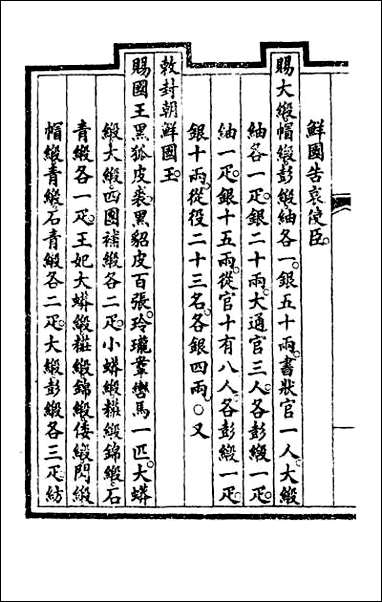 鮮國告哀使臣。
賜大緞帽緞彭緞紬各一。銀五十兩。書狀官一人。大緞
紬各一疋。銀二十兩。大通官三人。各彭緞一疋。
紬一疋。銀十五兩。從官十有八人。各彭緞一疋。
銀十兩。從役二十三名。各銀四兩。○又
敕封朝鮮國王。
賜國王黑狐皮裘。黑貂皮百張。玲瓏鞌轡馬一匹。大蟒
緞大緞四團補緞各二疋。小蟒緞糚緞錦緞石
青緞各一疋。王妃大蟒緞糚緞錦緞倭緞閃緞
帽緞青緞石青緞各二疋。大緞彭緞各三疋紡